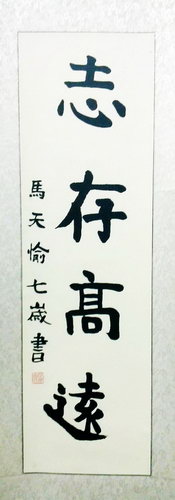 志存高遠
馬天愉七歲書